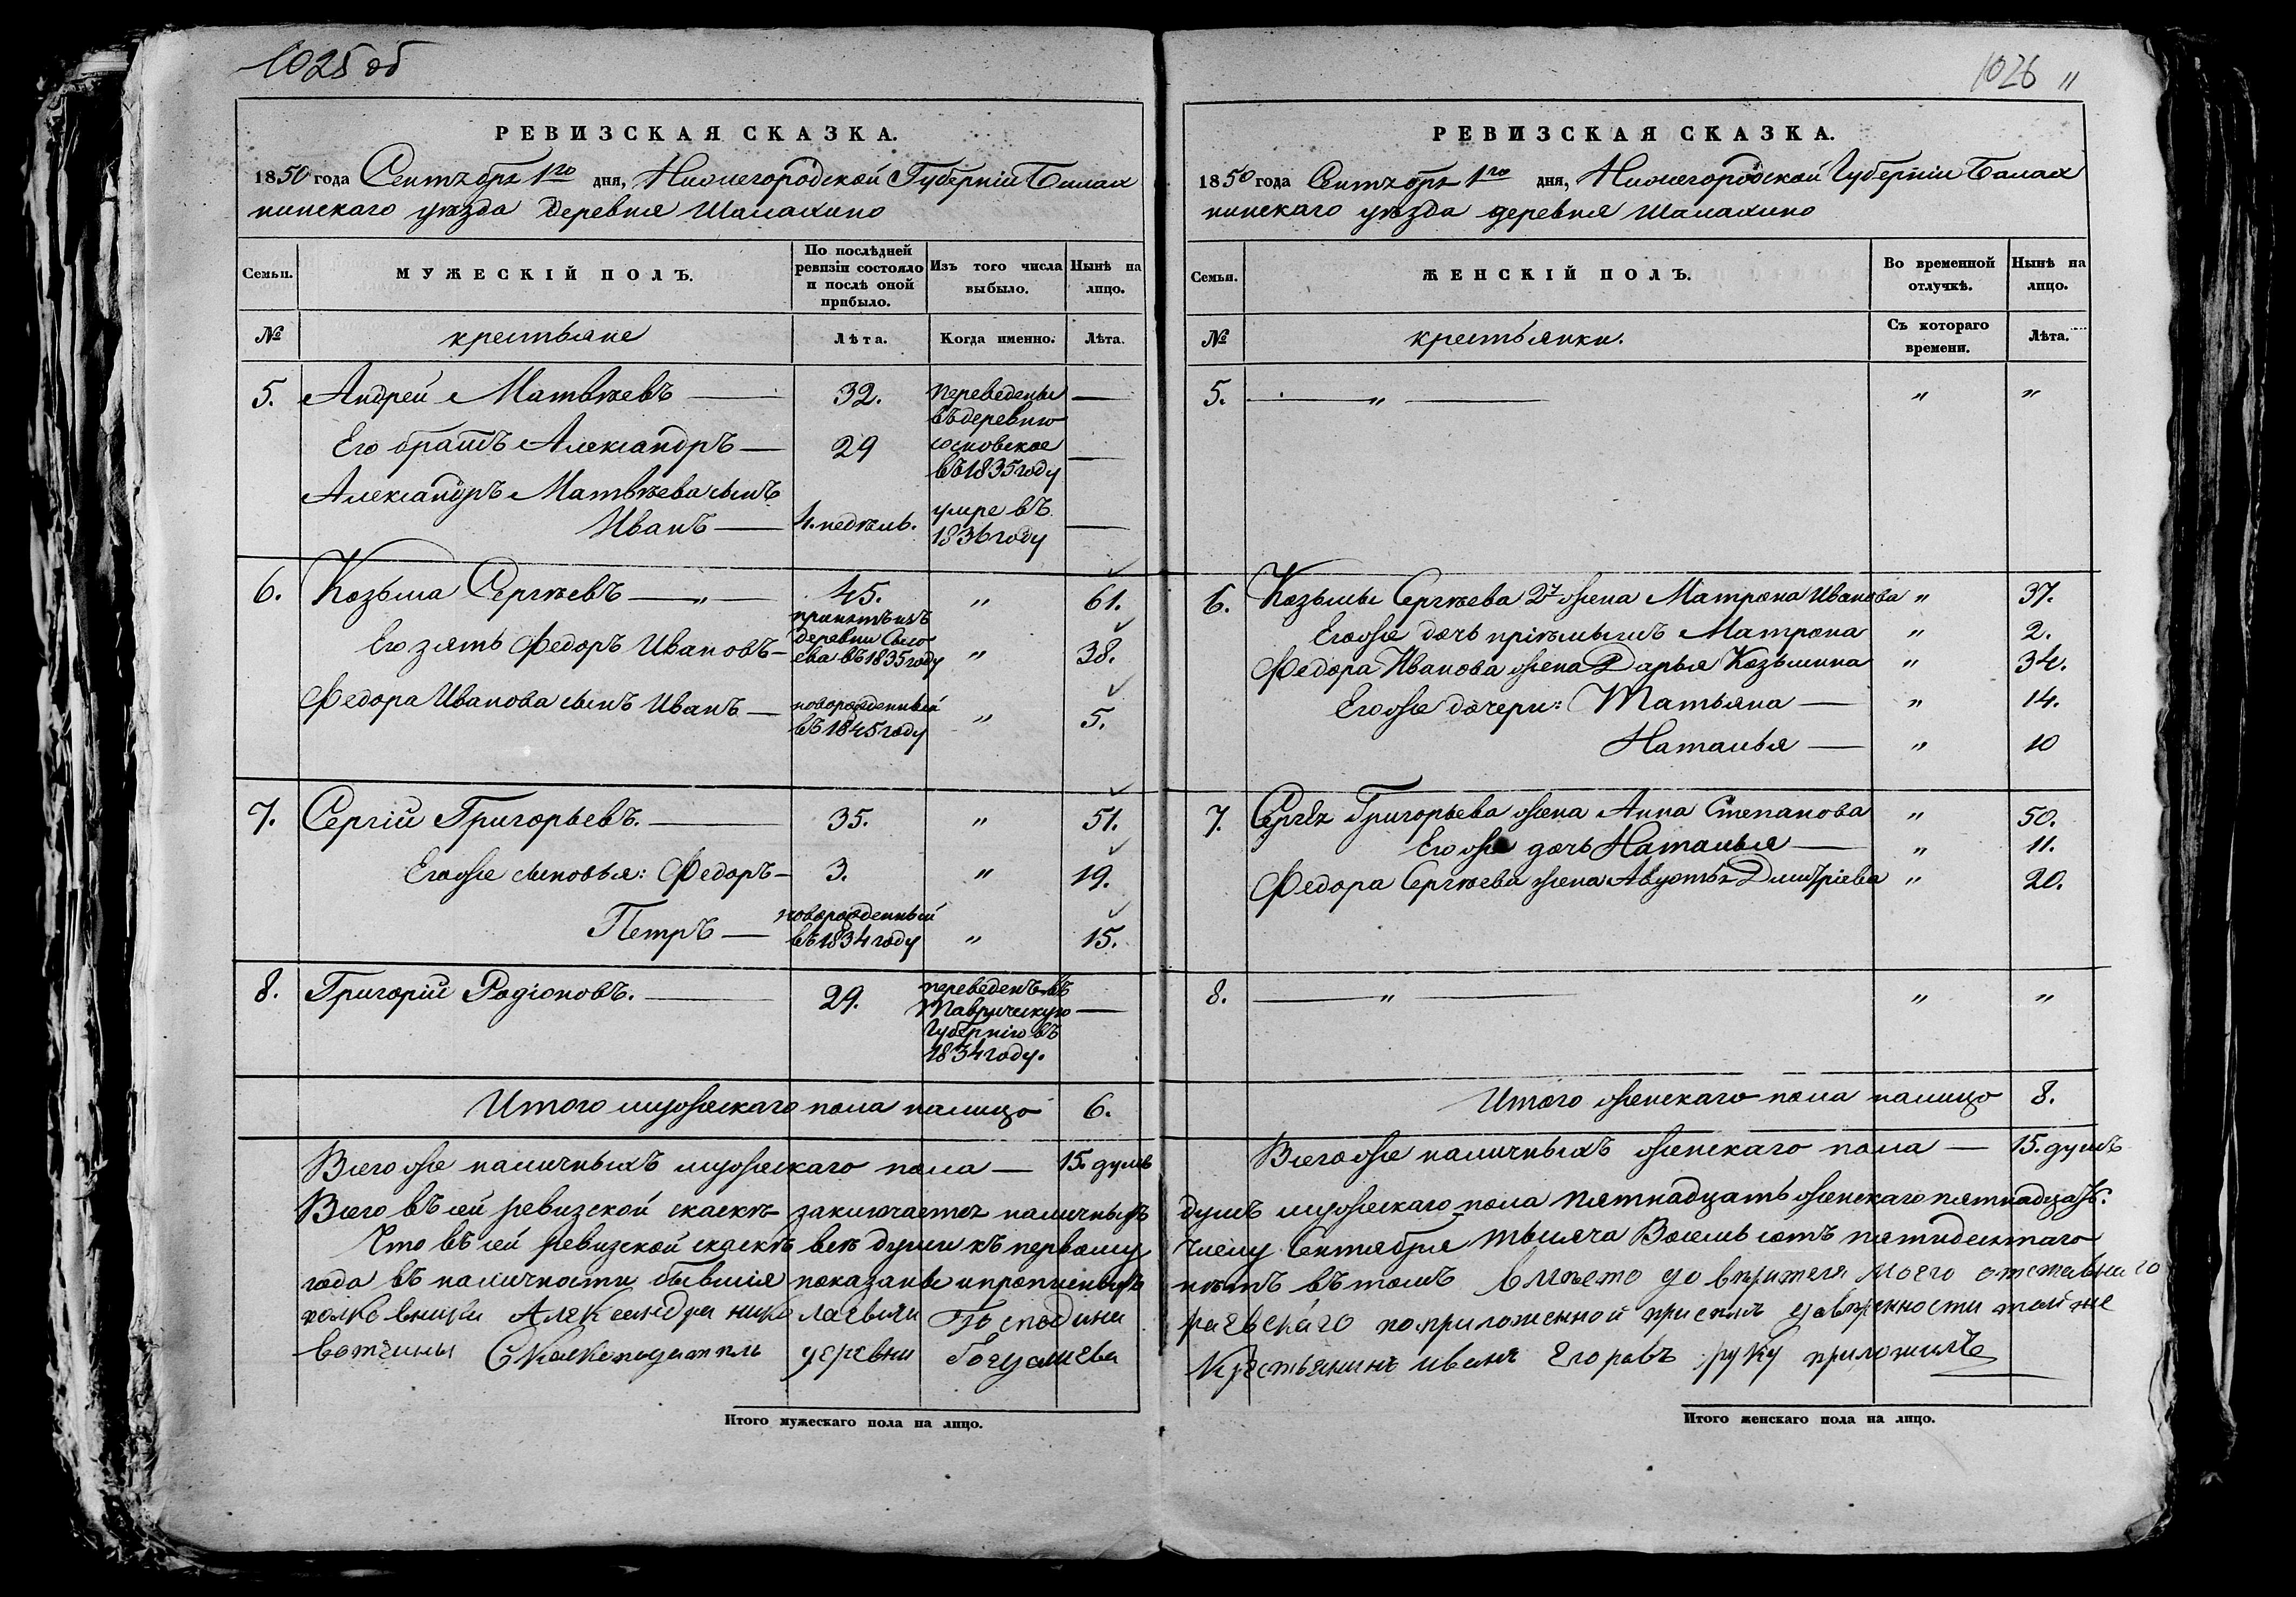 1025 об
РЕВИЗСКАЯ СКАЗКА.
1850 года Сентября 1го дня, Нижегородской Губерніи Балах
нинскаго уѣзда деревня Шалахино
Семьи.
МУЖЕСКІЙ ПОЛЪ.
По послѣдней
ревизіи состояло
и послѣ оной
прибыло.
Изъ того числа
выбыло.
Нынѣ на
лицо.
№
крестьяне
Лѣта.
Когда именно.
Лѣта.
5. Андрей Матвѣевъ — 32. переведены —
въ деревню
Его братъ Александръ — 29 сосновское —
въ 1835 году
Александръ Матвѣева сынъ
Иванъ — 4. недѣль. умре въ —
1836 году
6. Козьма Сергѣевъ — „ — 45. „ 61.
принятъ изъ
Его зять Федоръ Ивановъ — деревни „ 38.
въ 1835 году
Федора Иванова сынъ Иванъ — новорожденный „ 5.
въ 1845 году
7. Сергій Григорьевъ. — 35. „ 51.
Егоже сыновья: Федоръ — 3. „ 19.
Петръ — новорожденный „ 15.
въ 1834 году
8. Григорій Родіоновъ. — 29. переведенъ въ —
Таврическую
Губернію въ
1834 году.
Итого мужескаго пола налицо 6.
Всегоже наличныхъ мужескаго пола — 15. душъ
Всего въ сей ревизской скаскѣ заключается наличныхъ
Что въ сей ревизской скаскѣ всѣ души къ первому
года въ наличности бывшія показаны и прописныхъ
Александра Господина
вотчины Скаскоподатель деревни
Итого мужескаго пола на лицо.
1026 „
РЕВИЗСКАЯ СКАЗКА.
1850 года Сентября 1го дня, Нижегородской Губерніи Балах
нинскаго уѣзда деревня Шалахино
Семьи.
ЖЕНСКІЙ ПОЛЪ.
Во временной
отлучкѣ.
Нынѣ на
лицо.
№
крестьянки.
Съ котораго
времени.
Лѣта.
5. — „ — „ „
6. Козьмы Сергѣева 2я жена Матрона Иванова „ 37.
Егоже дочь пріемышъ Матрона „ 2.
Федора Иванова жена Дарья Козьмина „ 34.
Егоже дочери: Татьяна — „ 14.
Наталья — „ 10
7. Сергѣя Григорьева жена Анна Степанова „ 50.
Егоже дочь Наталья — „ 11.
Федора Сергѣева жена Авдотья Дмитріева „ 20.
8. — „ — „ „
Итого женскаго пола налицо 8.
Всегоже наличныхъ женскаго пола — 15. душъ
душъ мужескаго пола пятнадцать женскаго пятнадцать.
числу Сентября тысяча Восемь сотъ пятидесятаго
нѣтъ въ томъ вмѣсто довѣрителя моего отставнаго
по приложенной при семъ довѣренности той же
Крестьянинъ иванъ Егоровъ руку приложилъ
Итого женскаго пола на лицо.